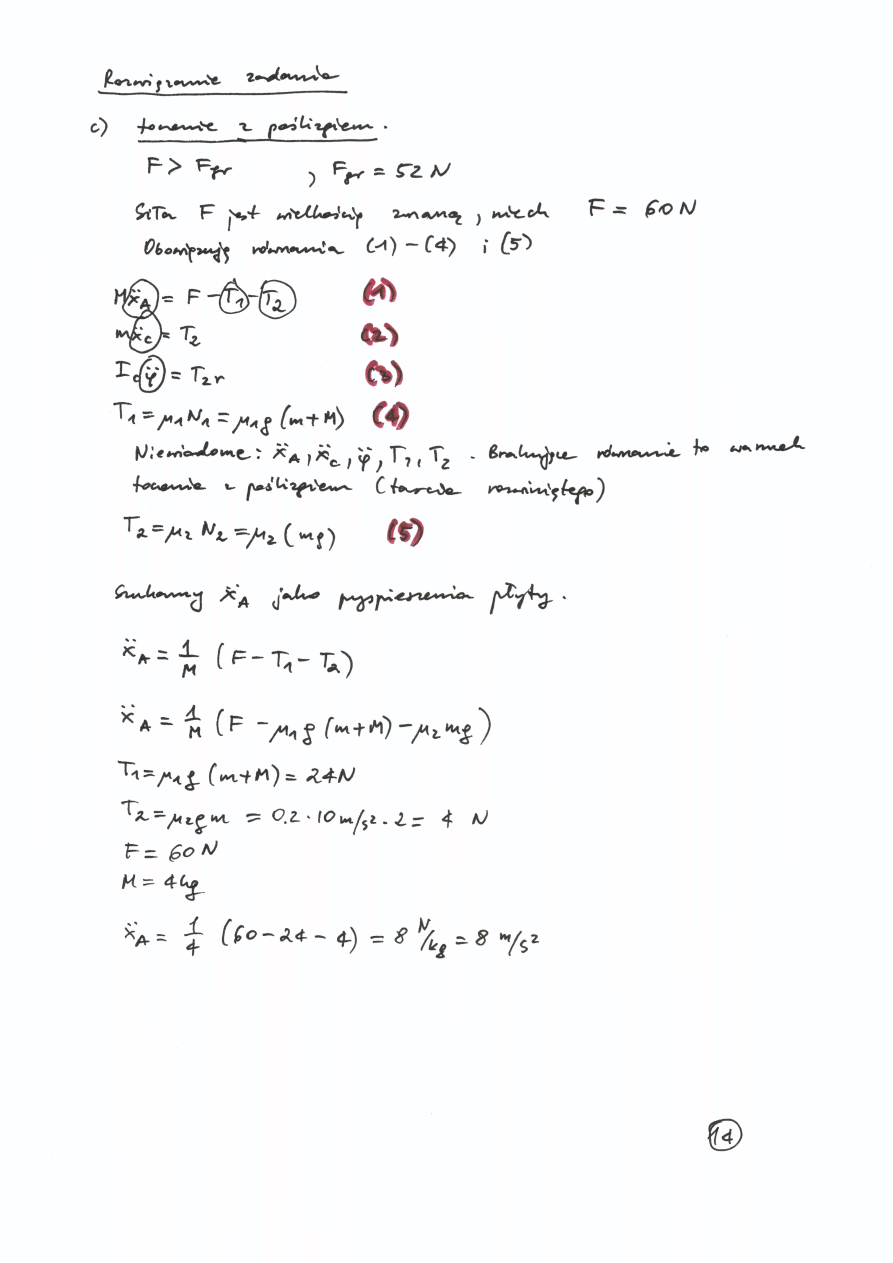 Rozwiązanie zadania
c) toczenie z poślizgiem.
F > Fgr , Fgr = 52 N
Siła F jest wielkością znaną, niech F = 60 N
Obowiązują równania (1) – (4) i (5)
Mẍ_A = F – T₁ – T₂ (1)
mẍ_c = T₂ (2)
I_c φ̈ = T₂r (3)
T₁ = μ₁N₁ = μ₁g (m+M) (4)
Niewiadome: ẍ_A, ẍ_c, φ̈, T₁, T₂. Brakujące równanie to warunek
toczenia z poślizgiem (tarcie rozwiniętego)
T₂ = μ₂ N₂ = μ₂ (mg) (5)
Szukamy ẍ_A jako przyspieszenia płyty.
ẍ_A = 1/M (F – T₁ – T₂)
ẍ_A = 1/M (F – μ₁g (m+M) – μ₂mg)
T₁ = μ₁g (m+M) = 24N
T₂ = μ₂gm = 0.2 · 10 m/s² · 2 = 4 N
F = 60 N
M = 4kg
ẍ_A = 1/4 (60 – 24 – 4) = 8 N/kg = 8 m/s²
14